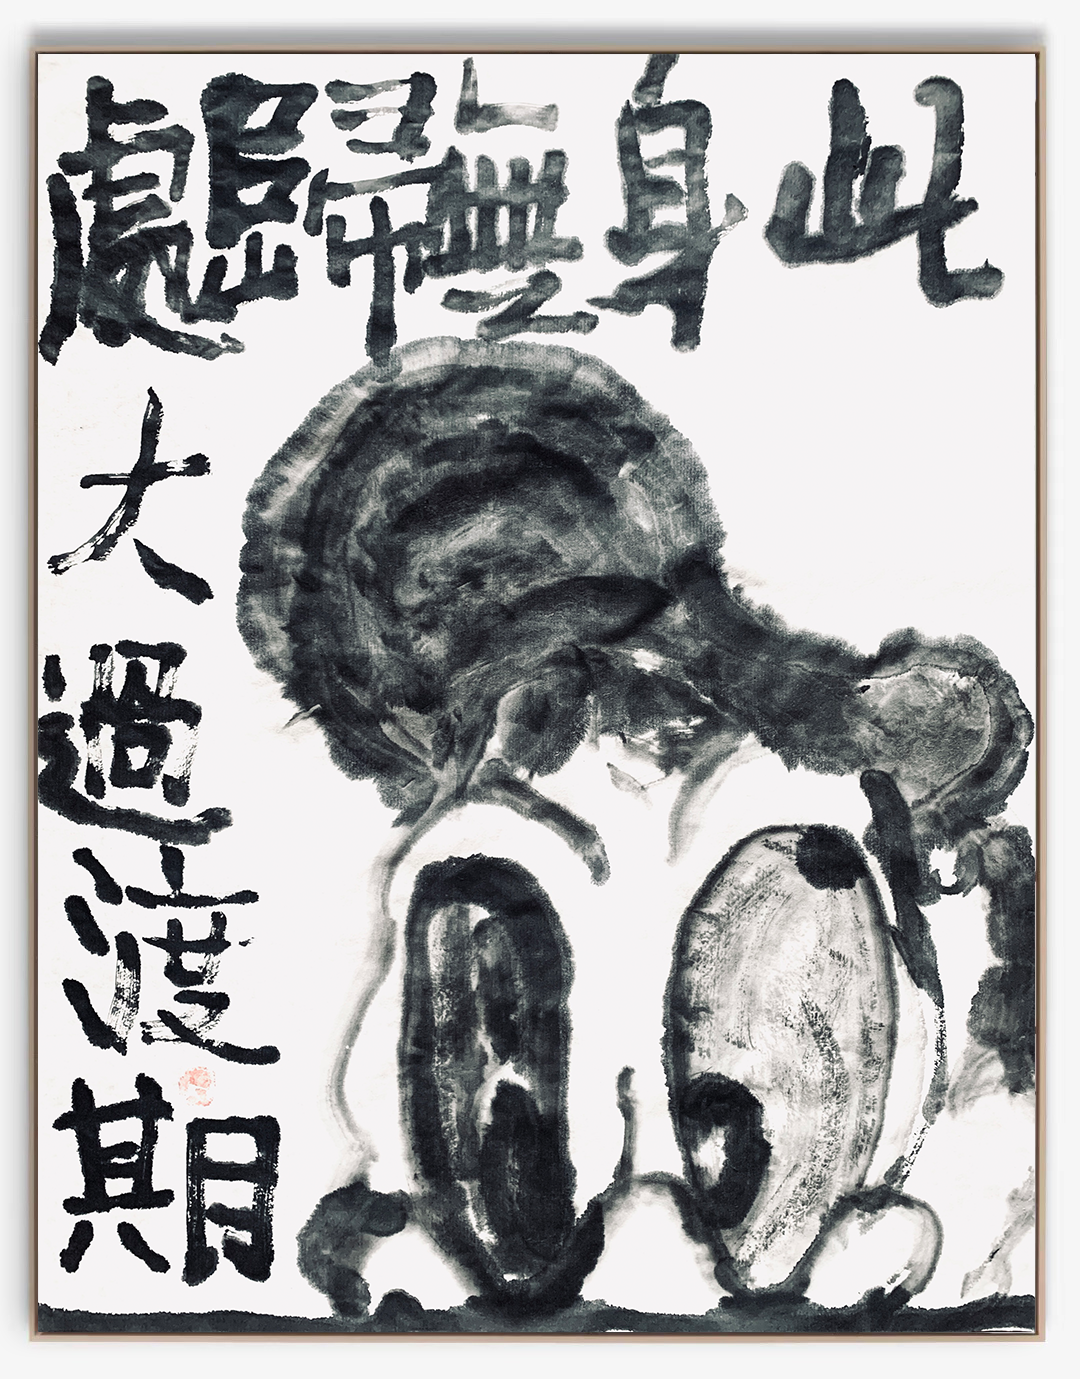 此身無歸處
大過渡期